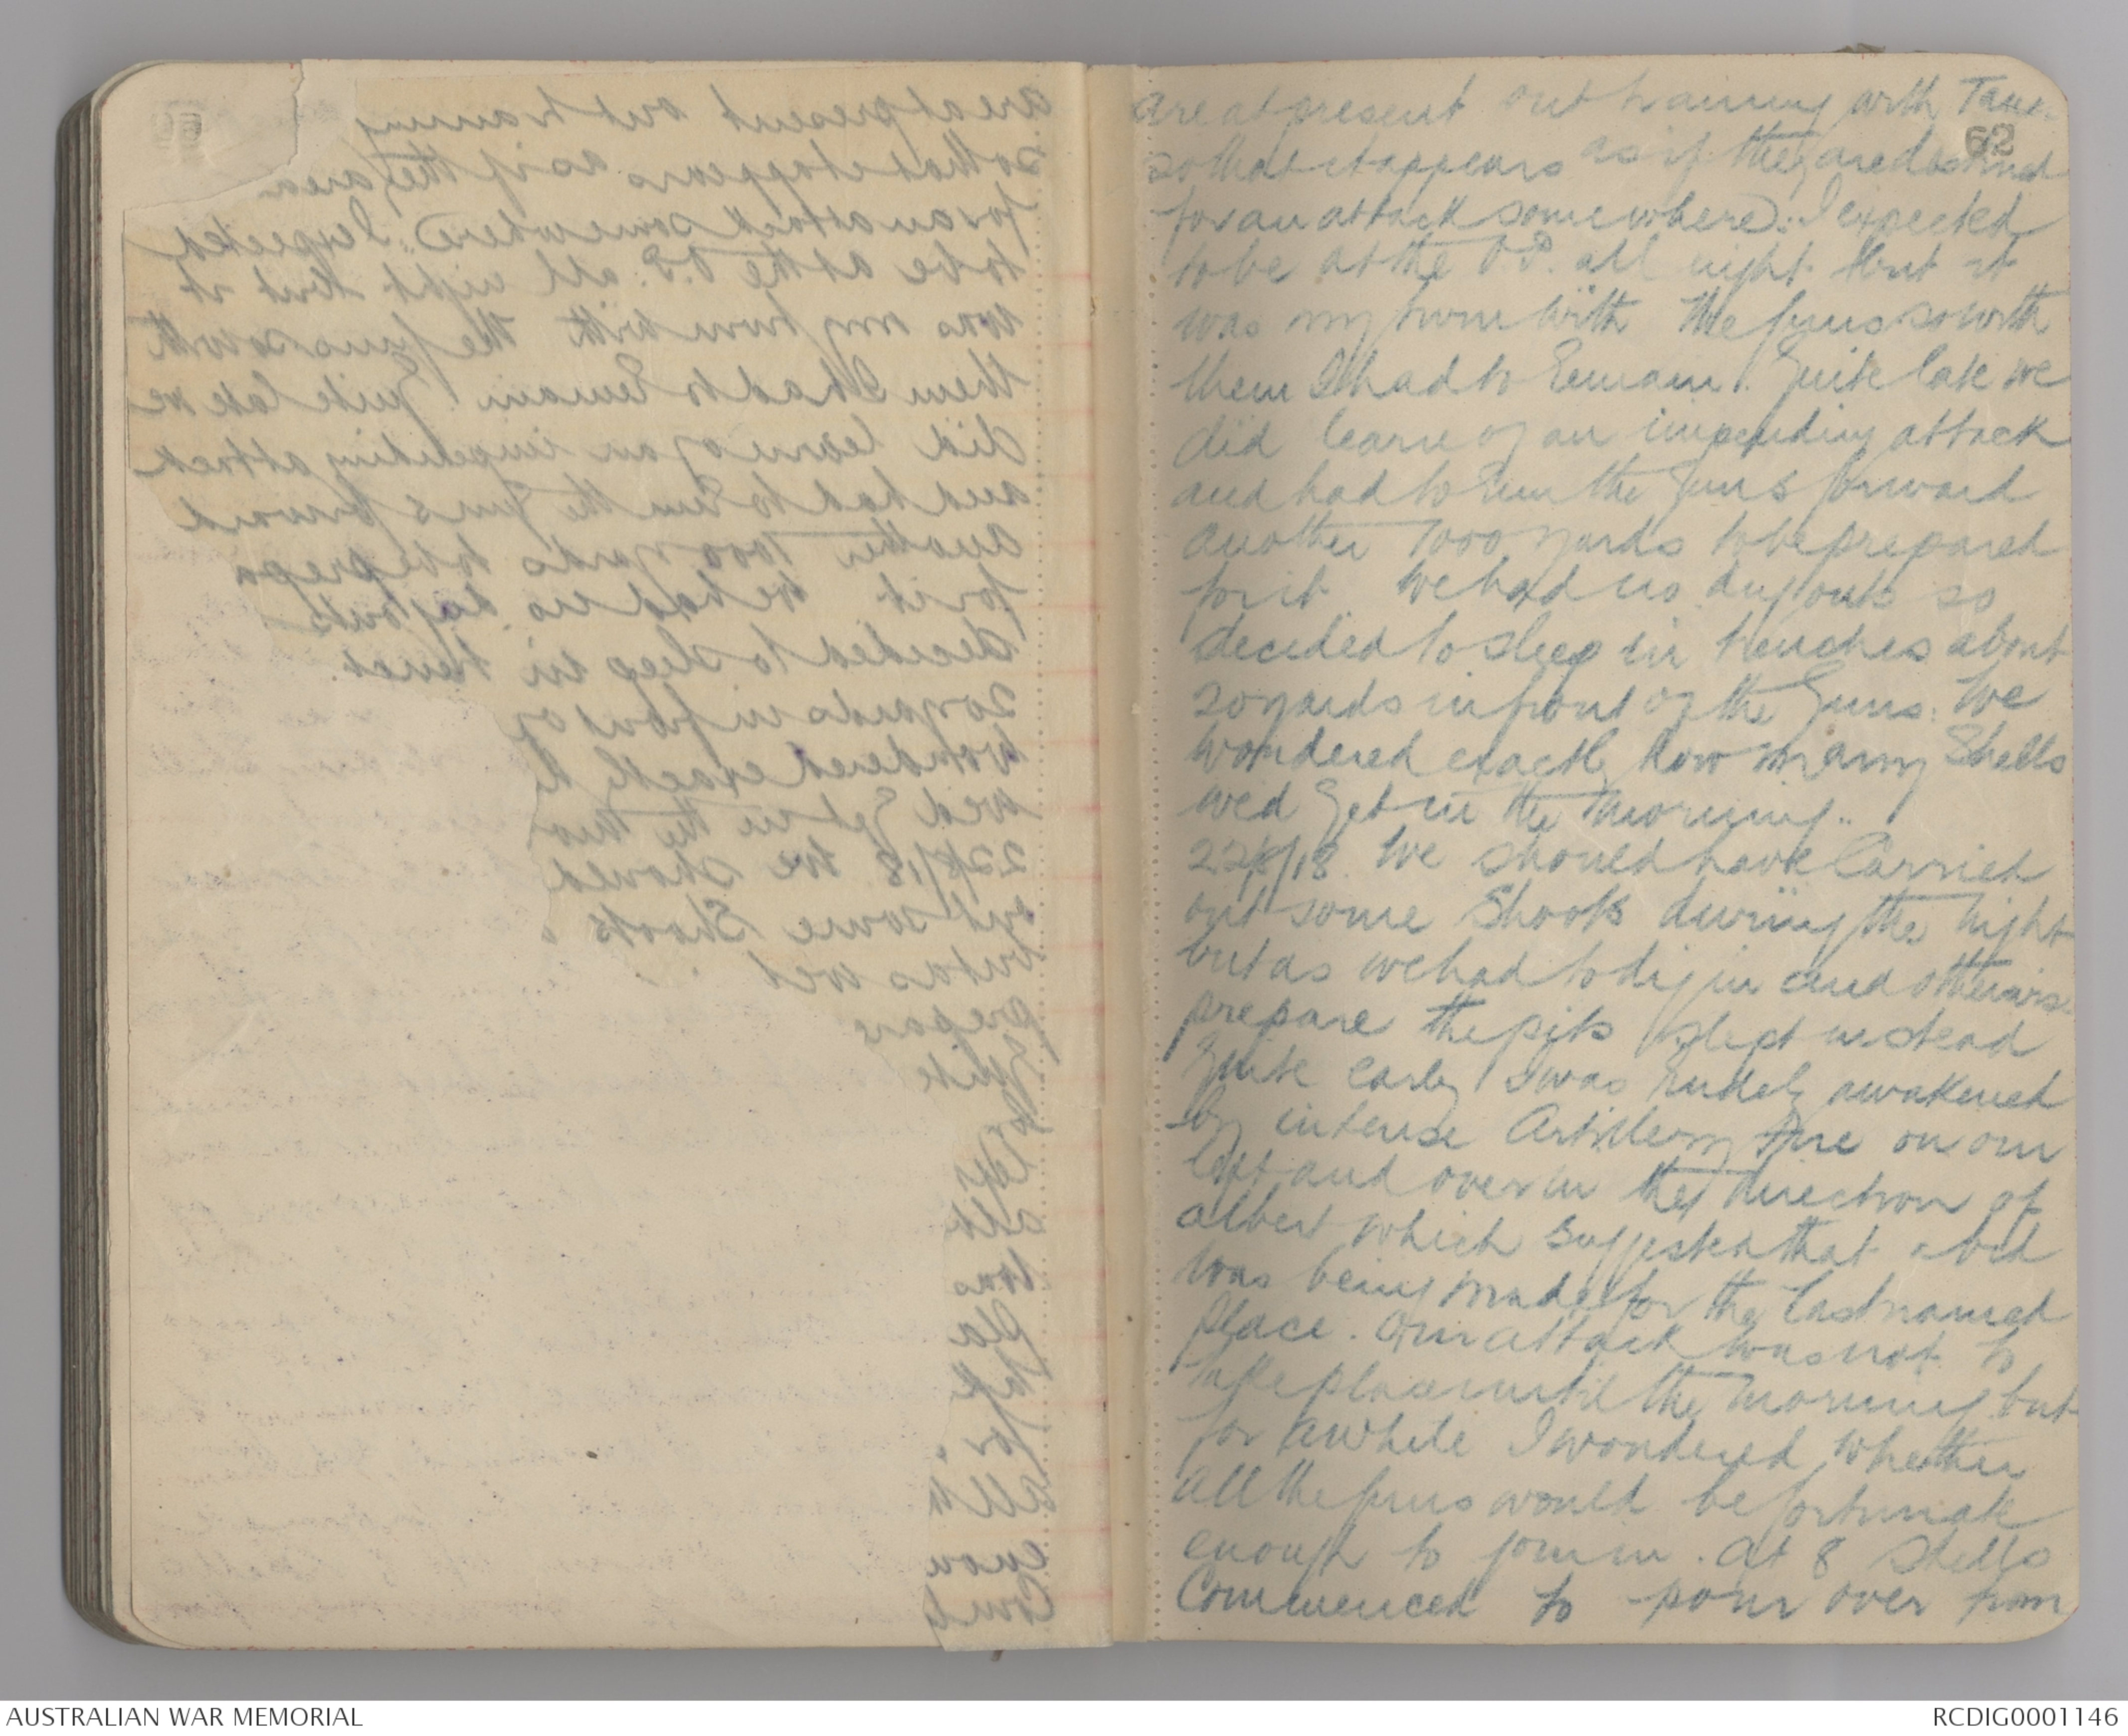 62
are at present out training with Tanks
so that it appears as if they are destined
for an attack somewhere. I expected
to be at the O.P. all night but it
was my turn with the guns so with
them I had to remain. Quite late we
did learn of an impending attack
and had to run the guns forward
another 1000 yards to be prepared
for it. We had no dug outs so
decided to sleep in trenches about
20 yards in front of the guns. We
wondered exactly how many shells
we'd get in the morning..
22/8/18. We should have carried
out some shoots during the night
but as we had to dig in and otherwise
prepare the pits slept instead
Quite early I was rudely awakened
by intense Artillery fire on our
left and over in the direction of
albert which suggested that a bid
was being made for the last named
place. Our attack was not to
take place until the morning but
for awhile I wondered whether
all the guns would be fortunate
enough to join in. At 8 shells
Commenced to pour over from
AUSTRALIAN WAR MEMORIAL
RCDIG0001146